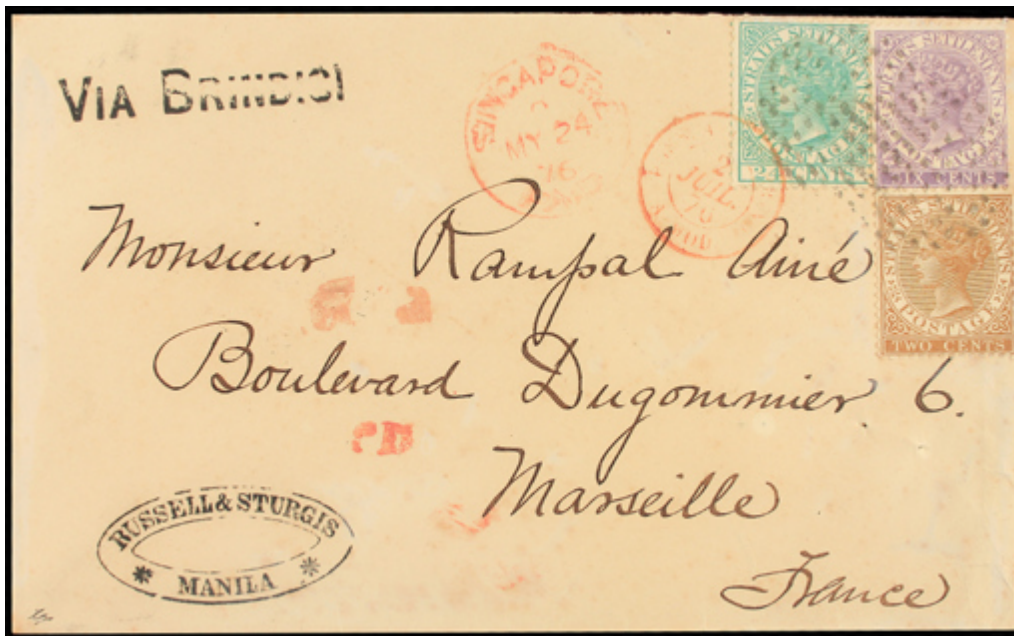 VIA BRINDISI
SINGAPORE
MY 24
76
2
JUIL.
76
STRAITS SETTLEMENTS
POSTAGE
24 CENTS
STRAITS SETTLEMENTS
POSTAGE
SIX CENTS
STRAITS SETTLEMENTS
POSTAGE
TWO CENTS
Monsieur Rampal Ainé
Boulevard Dugommier 6.
Marseille
France
PD
RUSSELL & STURGIS
* MANILA *